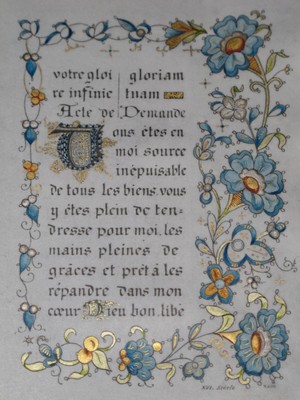 votre gloi gloriam
re infinie tuam
Acte de Demande
Vous êtes en
moi source
inépuisable
de tous les biens, vous
y êtes plein de ten-
dresse pour moi, les
mains pleines de
grâces et prêt à les
répandre dans mon
cœur Dieu bon, libé